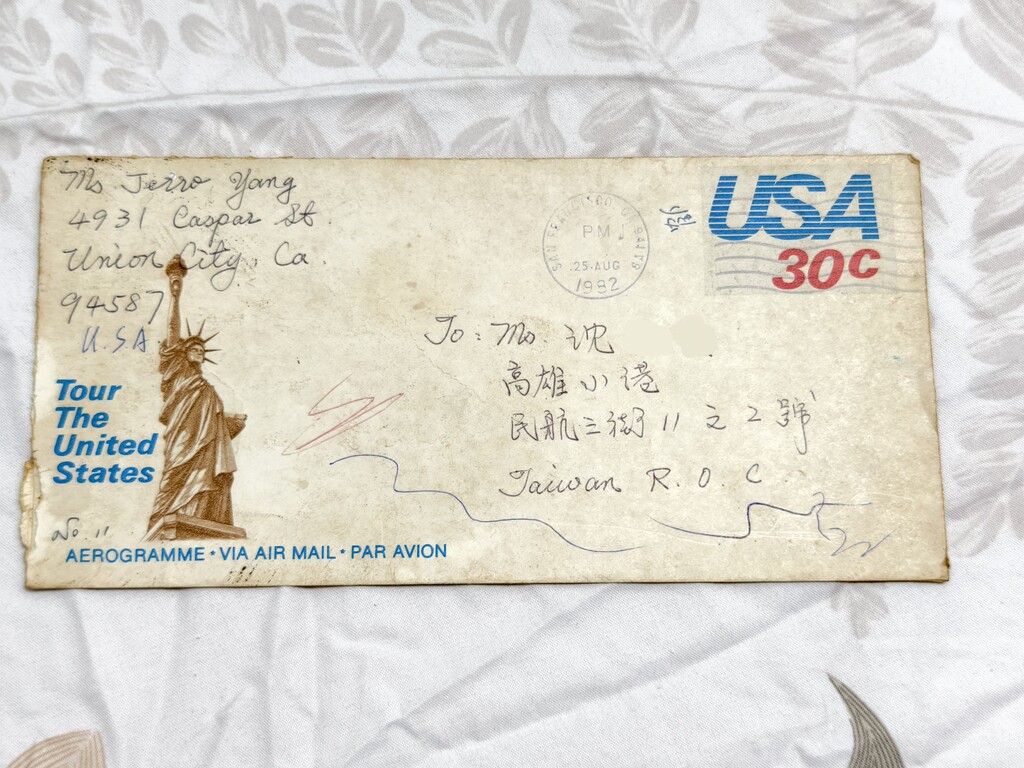 Ms Jerro Yang
4931 Caspar St.
Union City, Ca.
94587
U.S.A.
SAN FRANCISCO CA
PM
25 AUG
1982
USA
30c
To: Ms. 沈
高雄小港
民航三街11之2號
Taiwan R.O.C.
Tour
The
United
States
No. 11
AEROGRAMME • VIA AIR MAIL • PAR AVION